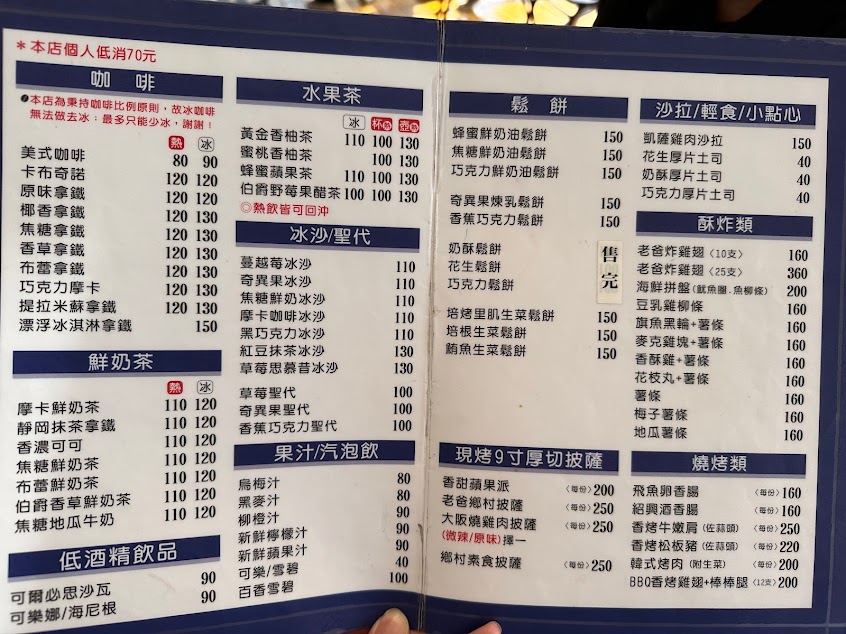 *本店個人低消70元
咖啡
本店為秉持咖啡比例原則，故冰咖啡
無法做去冰：最多只能少冰，謝謝！
熱 冰
美式咖啡 80 90
卡布奇諾 120 120
原味拿鐵 120 120
椰香拿鐵 120 130
焦糖拿鐵 120 130
香草拿鐵 120 130
布蕾拿鐵 120 130
巧克力摩卡 120 130
提拉米蘇拿鐵 120 130
漂浮冰淇淋拿鐵 150
鮮奶茶
熱 冰
摩卡鮮奶茶 110 120
靜岡抹茶拿鐵 110 120
香濃可可 110 120
焦糖鮮奶茶 110 120
布蕾鮮奶茶 110 120
伯爵香草鮮奶茶 110 120
焦糖地瓜牛奶 110 120
低酒精飲品
可爾必思沙瓦 90
可樂娜/海尼根 90
水果茶
冰 杯熱 壺熱
黃金香柚茶 110 100 130
蜜桃香柚茶 100 130
蜂蜜蘋果茶 110 100 130
伯爵野莓果醋茶 100 100 130
◎熱飲皆可回沖
冰沙/聖代
蔓越莓冰沙 110
奇異果冰沙 110
焦糖鮮奶冰沙 110
摩卡咖啡冰沙 110
黑巧克力冰沙 110
紅豆抹茶冰沙 130
草莓思慕昔冰沙 130
草莓聖代 100
奇異果聖代 100
香蕉巧克力聖代 100
果汁/汽泡飲
烏梅汁 80
黑麥汁 80
柳橙汁 90
新鮮檸檬汁 90
新鮮蘋果汁 90
可樂/雪碧 40
百香雪碧 100
鬆餅
蜂蜜鮮奶油鬆餅 150
焦糖鮮奶油鬆餅 150
巧克力鮮奶油鬆餅 150
奇異果煉乳鬆餅 150
香蕉巧克力鬆餅 150
奶酥鬆餅
花生鬆餅
巧克力鬆餅
售完
培烤里肌生菜鬆餅 150
培根生菜鬆餅 150
鮪魚生菜鬆餅 150
現烤9寸厚切披薩
香甜蘋果派 〈每份〉200
老爸鄉村披薩 〈每份〉250
大阪燒雞肉披薩 〈每份〉250
(微辣/原味)擇一
鄉村素食披薩 〈每份〉250
沙拉/輕食/小點心
凱薩雞肉沙拉 150
花生厚片土司 40
奶酥厚片土司 40
巧克力厚片土司 40
酥炸類
老爸炸雞翅〈10支〉 160
老爸炸雞翅〈25支〉 360
海鮮拼盤(魷魚圈.魚柳條) 200
豆乳雞柳條 160
旗魚黑輪+薯條 160
麥克雞塊+薯條 160
香酥雞+薯條 160
花枝丸+薯條 160
薯條 160
梅子薯條 160
地瓜薯條 160
燒烤類
飛魚卵香腸 〈每份〉160
紹興酒香腸 〈每份〉160
香烤牛嫩肩(佐蒜頭) 〈每份〉250
香烤松板豬(佐蒜頭) 〈每份〉220
韓式烤肉(附生菜) 〈每份〉200
BBQ香烤雞翅+棒棒腿〈12支〉200